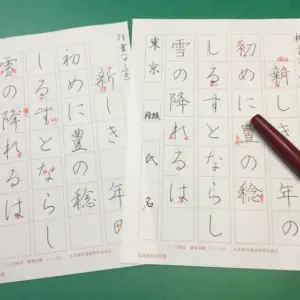 新しき年の
初めに豊の稔
しるすとならし
雪の降れるは
新しき年の
初めに豊の稔
しるすとならし
雪の降れるは
東京 段級 氏名